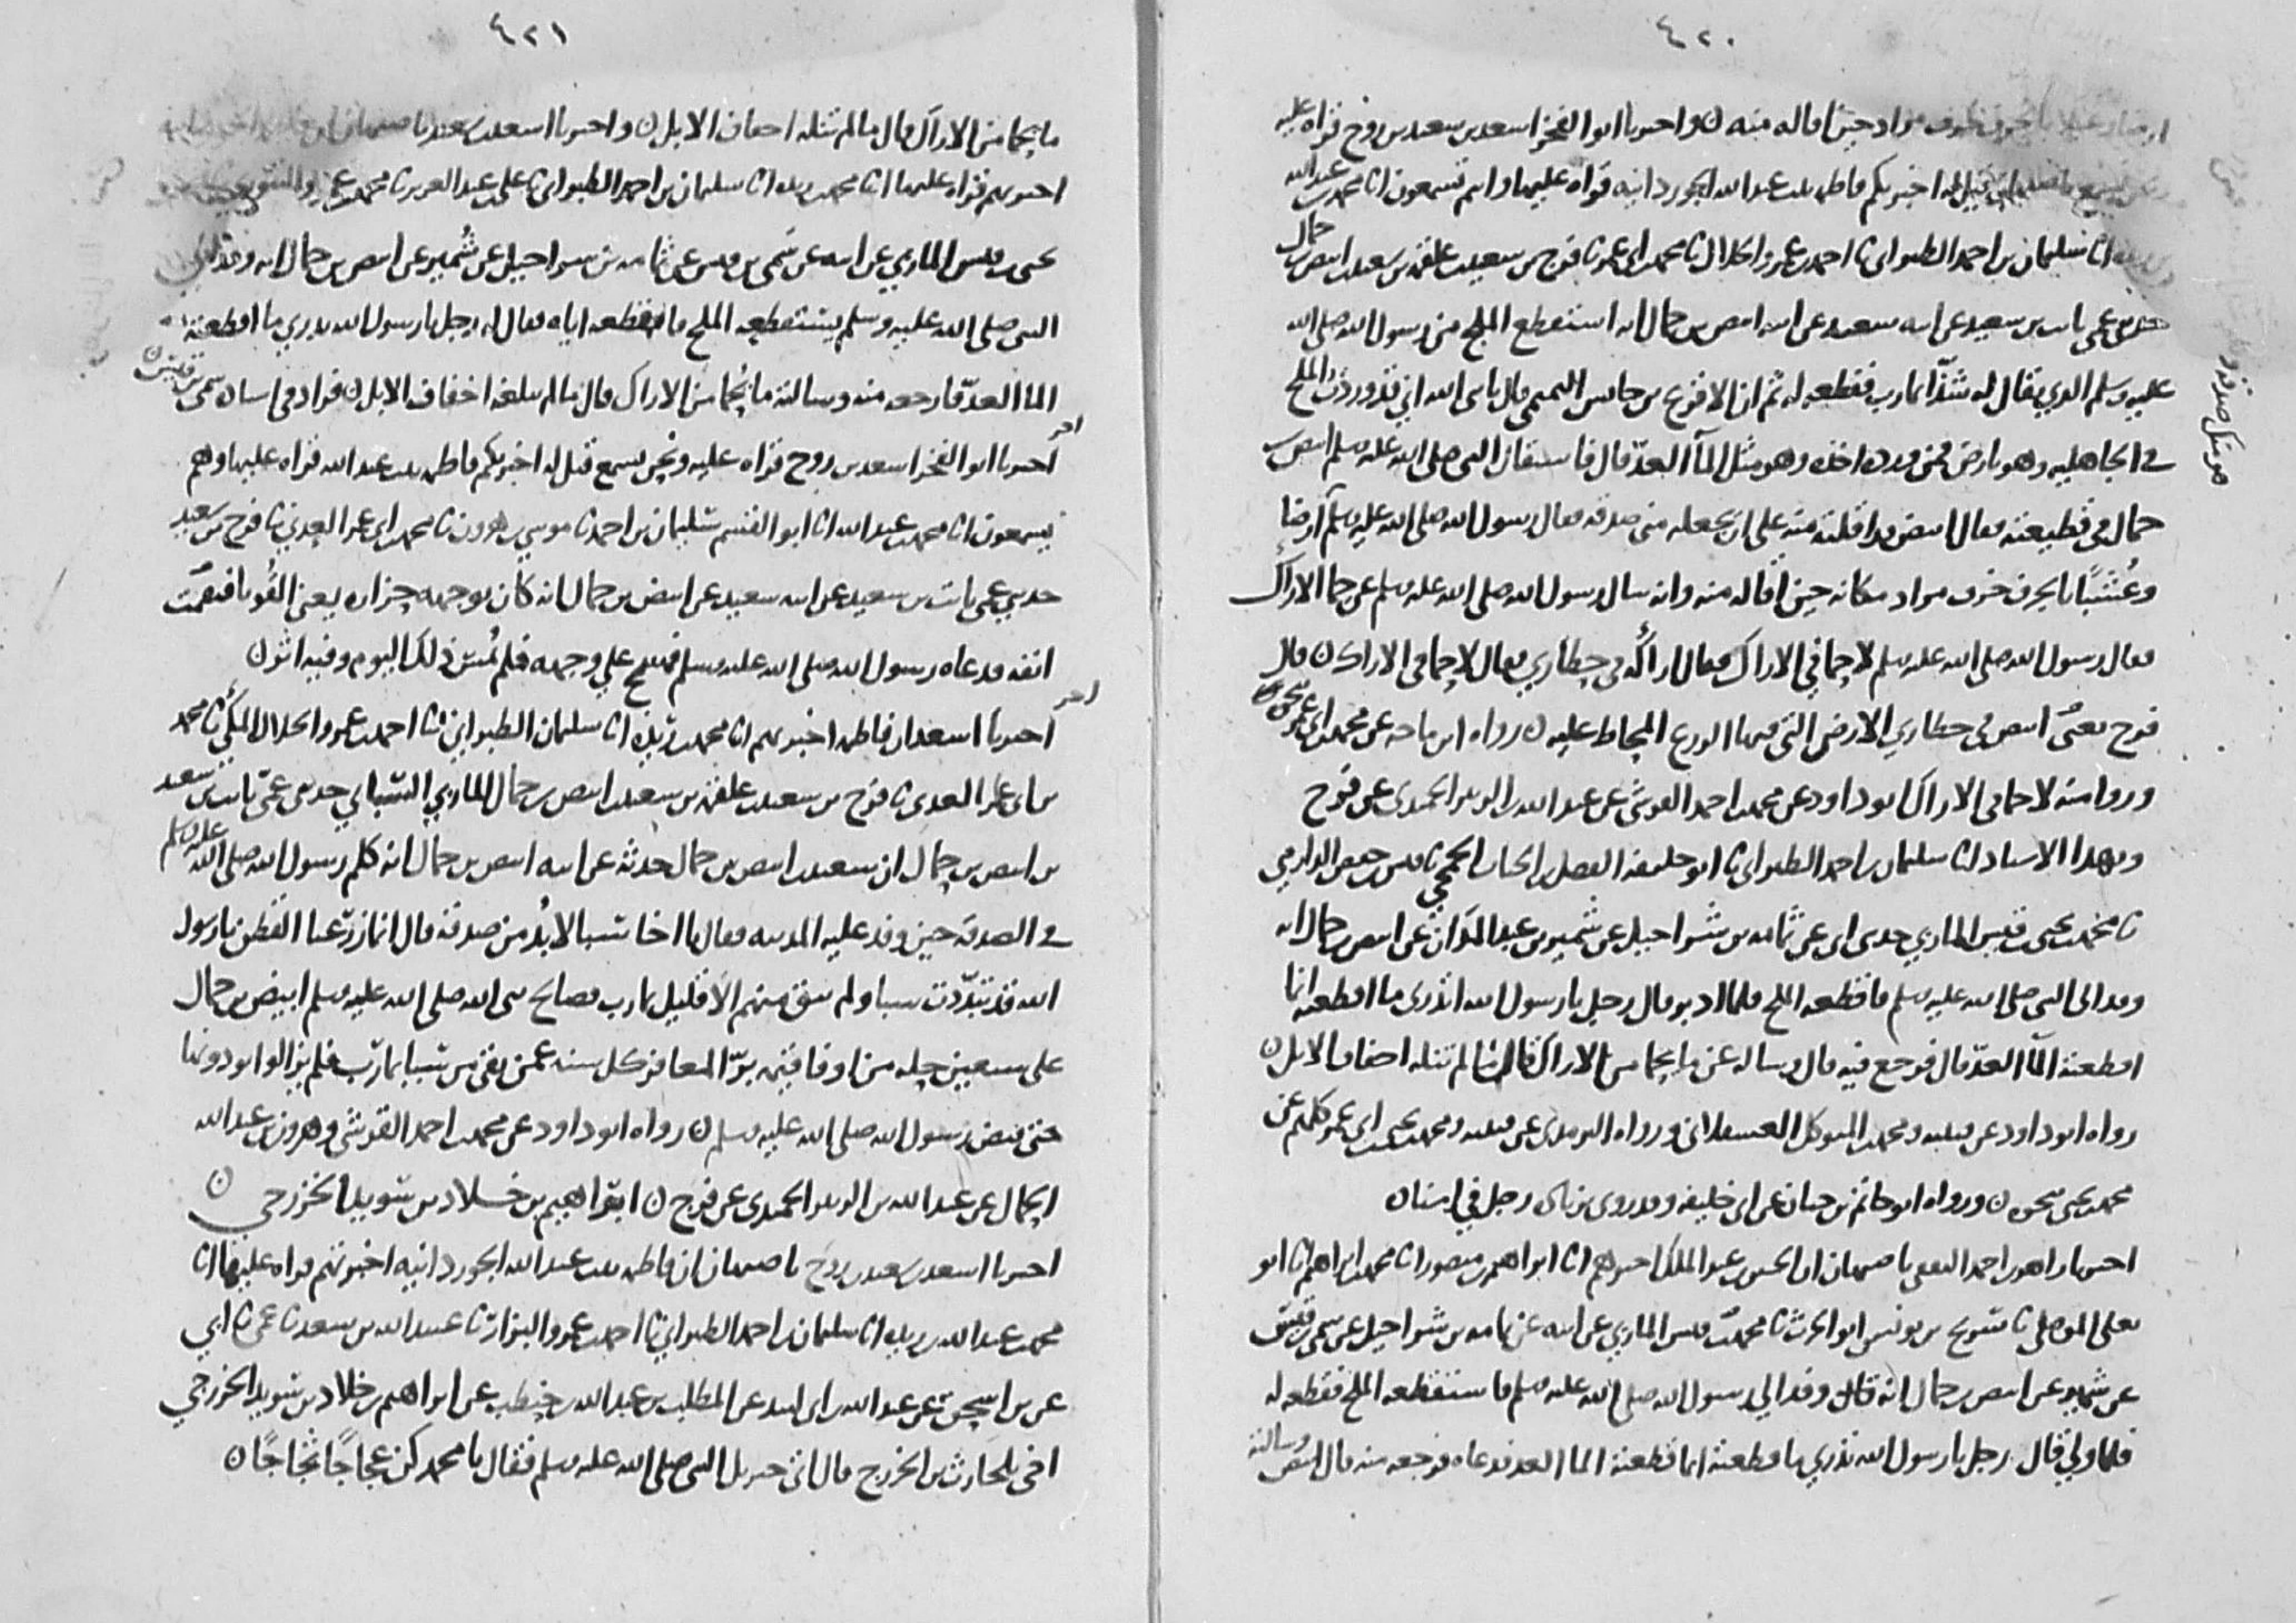 ٤٢٠
حين اقاله منه ن واخبرنا ابو الفخر اسعد بن سعيد بن روح قراه عليه
قيل له اخبركم فاطمه بنت عبد الله الجوزدانيه قراه عليها وانتم تسمعون انا محمد بن عبد الله
انا سليمان بن احمد الطبراني نا احمد بن عمرو الخلال نا محمد بن ابي عمر نا فرج بن سعيد بن علقمه بن سعيد بن ابيض بن حمال
حدثني عمي ثابت بن سعيد عن ابيه سعيد عن ابيه ابيض بن حمال انه استقطع الملح من رسول الله صلى الله
عليه وسلم الذي يقال له شذا بمارب فقطعه له ثم ان الاقرع بن حابس التميمي قال يا نبي الله اني قد وردت الملح
في الجاهليه وهو بارض فمن ورده اخذه وهو مثل المآ العدّ قال فاستقال النبي صلى الله عليه وسلم ابيض بن
حمال في قطيعته فقال ابيض قد اقلته منه على ان يجعله مني صدقه فقال رسول الله صلى الله عليه وسلم ارضا
وعُشبًا بالجرف جرف مراد مكانه حين اقاله منه وانه سال رسول الله صلى الله عليه وسلم عن حما الاراك
فقال رسول الله صلى الله عليه وسلم لا حما في الاراك فقال اراكه في حظاري فقال لا حما في الاراك ن قال
فرج يعني ابيض في حظاري الارض التي فيها الزرع المحاط عليه ن رواه ابن ماجه عن محمد بن ابي عمر
وروا منه لا حما في الاراك ابو داود عن محمد بن احمد القرشي عن عبد الله بن الزبير الحميدي عن فرج
وبهذا الاسناد انا سليمان بن احمد الطبراني نا ابو خليفه الفضل بن الحباب الجمحي نا قيس بن حفص الدارمي
نا محمد بن يحيى بن قيس الماربي حدثني ابي عن ثمامه بن شراحيل عن شمير بن عبد المدان عن ابيض بن حمال انه
وفد الى النبي صلى الله عليه وسلم فاقطعه الملح فلما ادبر قال رجل يا رسول الله اتدري ما اقطعته انما
اقطعته المآ العدّ قال فرجع فيه قال وساله عن ما يحما من الاراك قال ما لم تنله اخفاف الابل ن
رواه ابو داود عن قتيبه ومحمد بن المتوكل العسقلاني ورواه الترمذي عن قتيبه ومحمد بن يحيى بن ابي عمر كلهم عن
محمد بن يحيى نحوه ن ورواه ابو حاتم بن حبان عن ابي خليفه وقد روي بزيادة رجل في اسناده
اخبرنا زاهر بن احمد الثقفي باصبهان ان الحسين بن عبد الملك اخبرهم انا ابراهيم بن منصور انا محمد بن ابراهيم انا ابو
يعلى الموصلي نا سريج بن يونس ابو الحرث نا محمد بن يحيى بن قيس الماربي عن ابيه عن ثمامه بن شراحيل عن سمي بن قيس
عن شمير عن ابيض بن حمال انه قال وفد الى رسول الله صلى الله عليه وسلم فاستقطعه الملح فقطعه له
فلما ولي قال رجل يا رسول الله تدري ما قطعته انما قطعته الما العد فدعاه فرجعه منه قال ابيض وسالته
٤٢١
ما يحما من الاراك قال ما لم تنله اخفاف الابل ن واخبرنا اسعد بن سعيد باصبهان
اخبرتهم قراه عليها انا محمد بن ريذه انا سليمان بن احمد الطبراني نا علي بن عبد العزيز نا محمد بن
يحيى بن قيس الماربي عن ابيه عن سمي بن قيس عن ثمامه بن شراحيل عن شُمير عن ابيض بن حمال انه وفد الى
النبي صلى الله عليه وسلم يستقطعه الملح فاقطعه اياه فقال له رجل يا رسول الله تدري ما اقطعته
الما العدّ فارجعه منه وسالته ما يُحما من الاراك قال ما لم تبلغه اخفاف الابل ن فزاد في اسناده سمي بن قيس ن
اخبرنا ابو الفخر اسعد بن روح قراه عليه ونحن نسمع قيل له اخبركم فاطمه بنت عبد الله قراه عليها وهم
يسمعون انا محمد بن عبد الله انا ابو القسم سليمان بن احمد نا موسي بن هرون نا محمد بن ابي عمر العدني نا فرج بن سعيد
حدثني عمي ثابت بن سعيد عن ابيه سعيد عن ابيض بن حمال انه كان بوجهه حزازه يعني القُوبا فنقمت
انفه فدعاه رسول الله صلى الله عليه وسلم فمسح علي وجهه فلم يُمس ذلك اليوم وفيه اثر ن
اخبرنا اسعد ان فاطمه اخبرتهم انا محمد بن ريذه انا سليمان الطبراني نا احمد بن عمرو الخلال المكي نا محمد
بن ابي عمر العدني نا فرج بن سعيد بن علقمه بن سعيد بن ابيض بن حمال الماربي السبائي حدثني عمّي ثابت بن سعيد
بن ابيض بن حمال ان سعيد بن ابيض بن حمال حدثه عن ابيه ابيض بن حمال انه كلم رسول الله صلى الله عليه وسلم
في الصدقه حين وفد عليه المدينه فقال يا اخا سبا لا بُد من صدقه قال انما زرّعنا القطن يا رسول
الله قد تبدّدت سبا ولم يبق منهم الا قليل بمارب فصالح نبي الله صلى الله عليه وسلم ابيض بن حمال
على سبعين حله من اوفا قيمه بزّ المعافر كل سنه عمن بقي من سبا بمارب فلم يزالوا يودونها
حتى قبض رسول الله صلى الله عليه وسلم ن رواه ابو داود عن محمد بن احمد القرشي وهرون بن عبد الله
الحمال عن عبد الله بن الزبير الحميدي عن فرج ن ابراهيم بن خلاد بن سويد الخزرجي ن
اخبرنا اسعد بن سعيد بن روح باصبهان ان فاطمه بنت عبد الله الجوزدانيه اخبرتهم قراه عليها انا
محمد بن عبد الله بن ريذه انا سليمان بن احمد الطبراني نا احمد بن عمرو البزار نا عبيد الله بن سعد نا عمي نا ابي
عن بن اسحق عن عبد الله بن ابي لبيد عن المطلب بن عبد الله بن حنطب عن ابراهيم بن خلاد بن سويد الخزرجي
اخي بلحارث بن الخزرج قال اتى جبريل النبي صلى الله عليه وسلم فقال يا محمد كن عجاجًا ثجاجًا ن